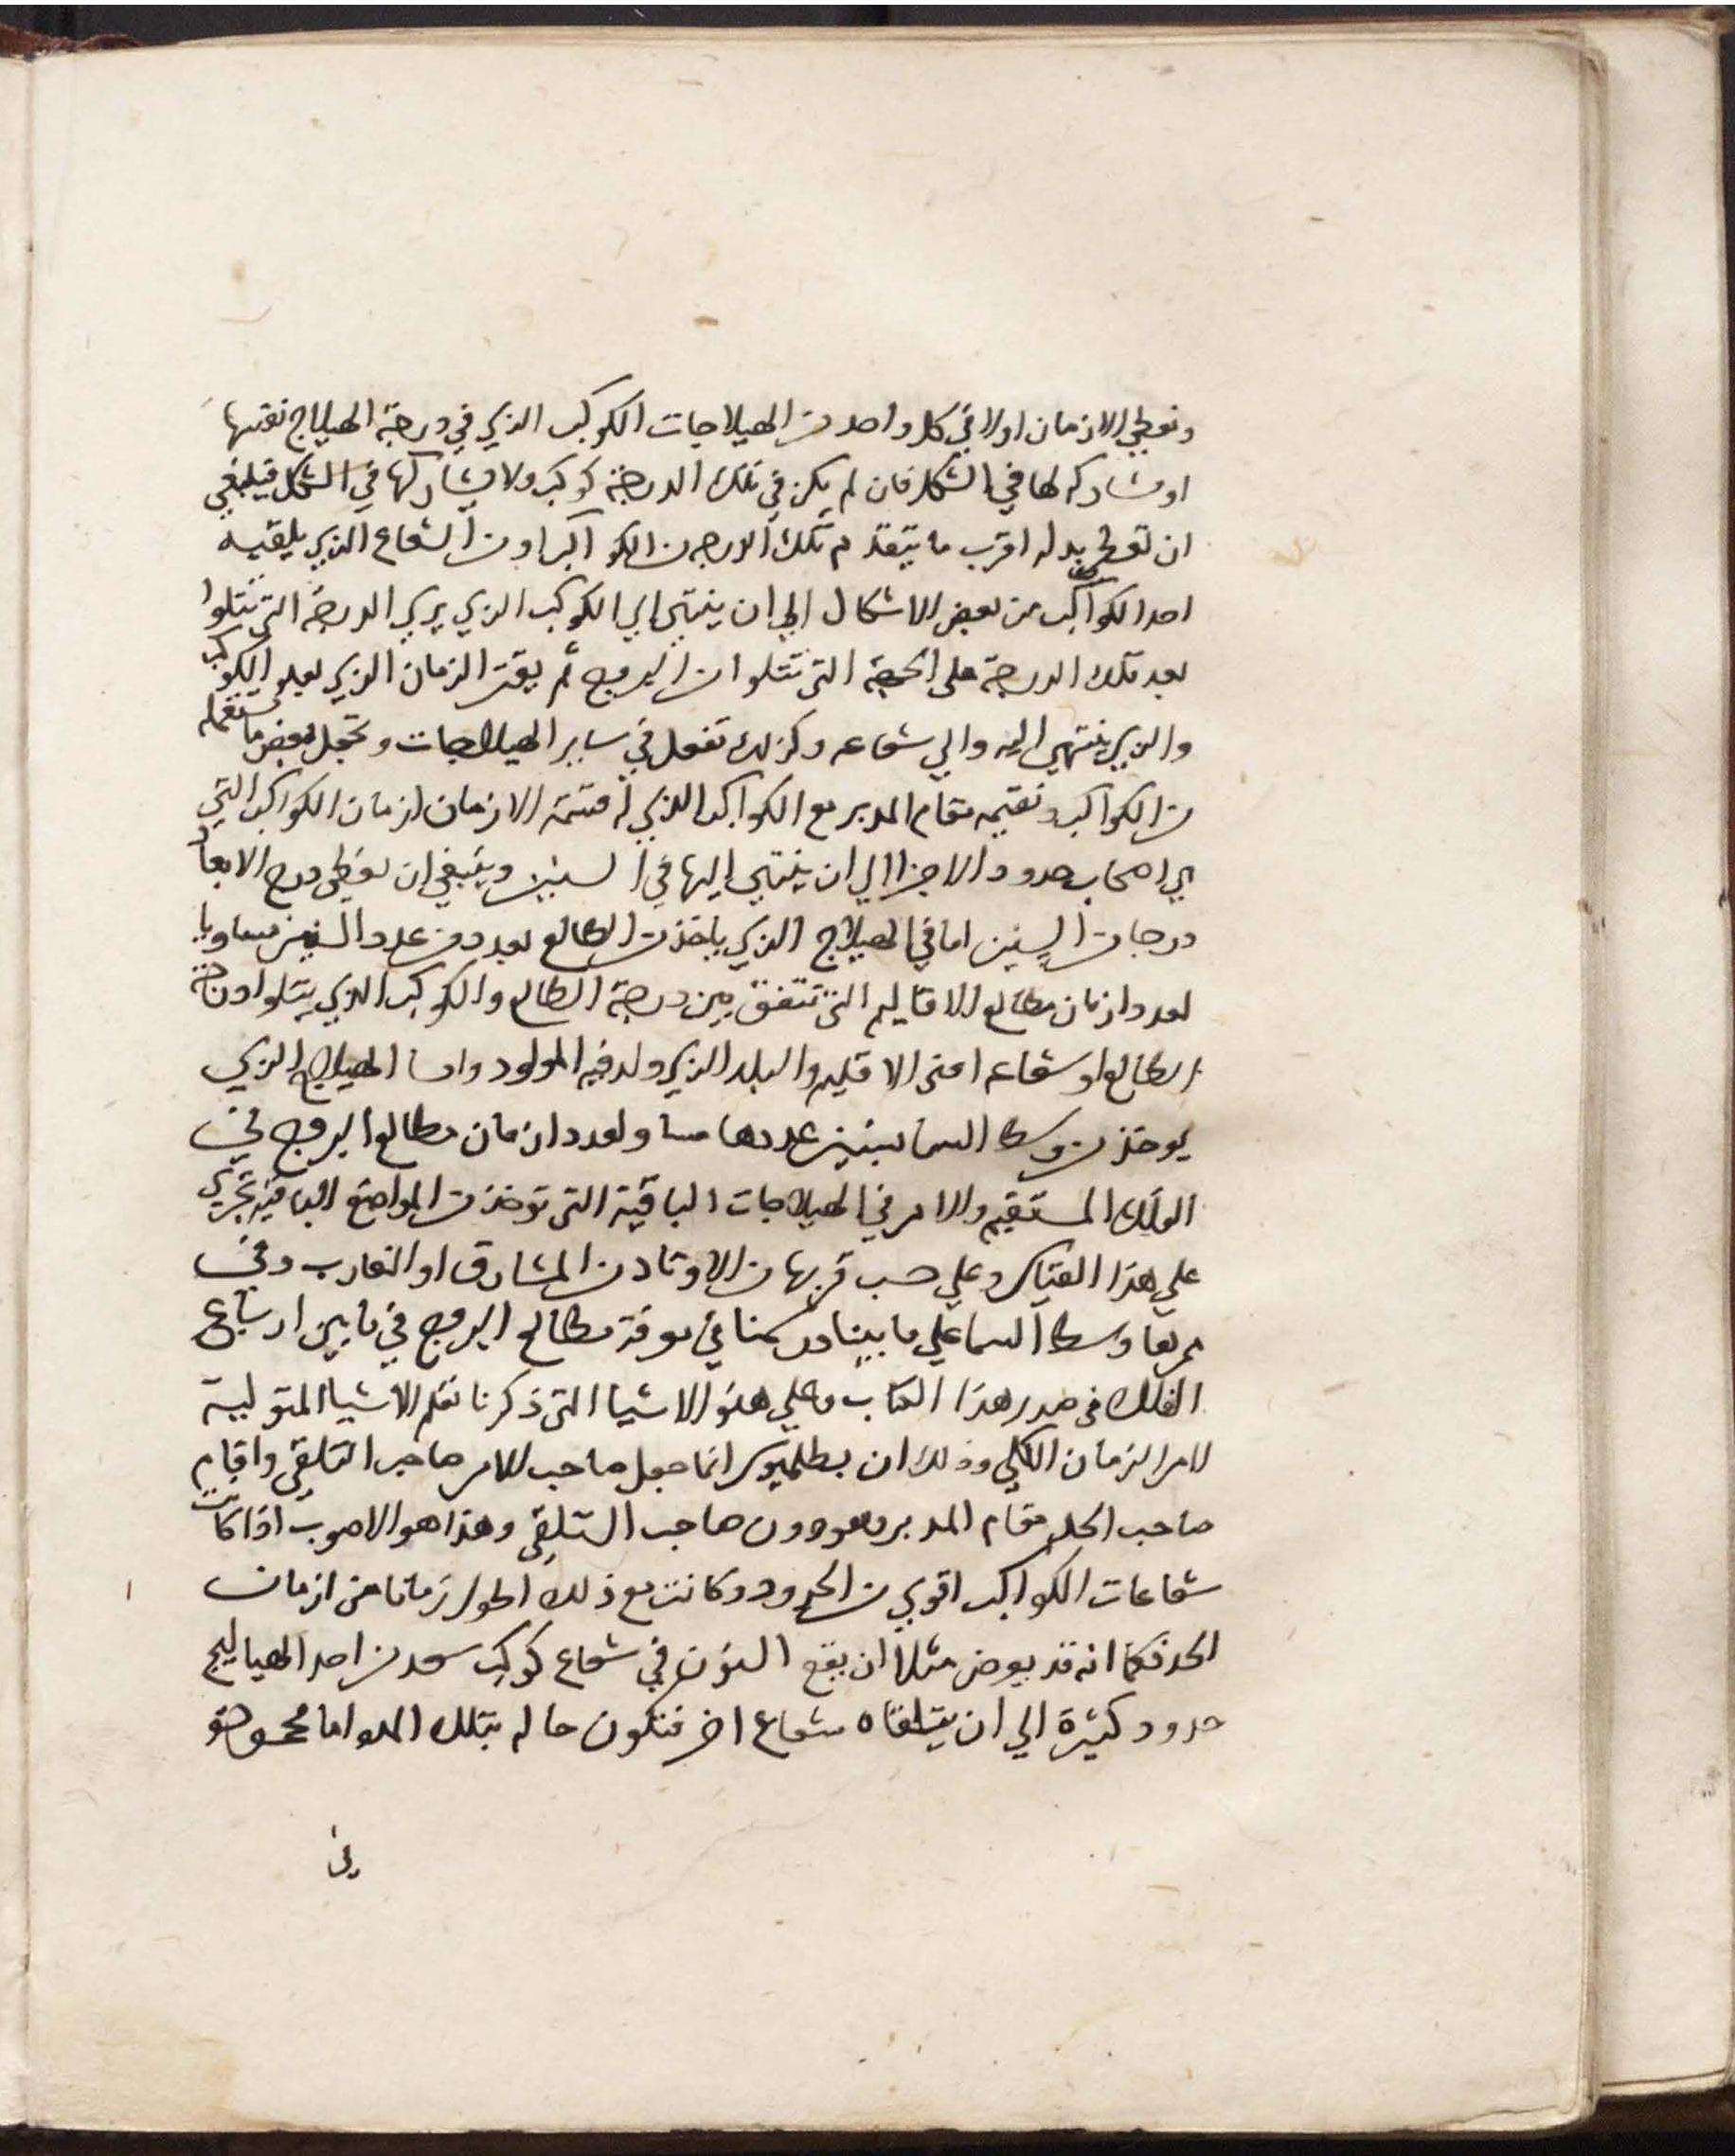 ونعطي الازمان اولا في كل واحد من الهيلاجات الكوكب الذي في درجة الهيلاج نفسها
او مشاركه لها في الشكل فان لم يكن في تلك الدرجة كوكب ولا مشاركها في الشكل فينبغي
ان نعطي بدله اقرب ما يتقدم تلك الدرجه من الكواكب او من الشعاع الذي يلقيه
احد الكواكب من بعض الاشكال الي ان ينتهي الي الكوكب الذي يري الدرجة التي تتلوا
بعد تلك الدرجة علي الجهة التي تتلوا من البروج ثم يقترن الزمان الذي يعد الكوكب
والذي ينتهي اليه والي شعاعه وكذلك تفعل في ساير الهيلاجات وتجعل بعض ما تستعمله
من الكواكب ونقيمه مقام المدبر مع الكواكب الذي له قسمة الازمان ازمان الكواكب التي
هي اصحاب حدود الاجزا الي ان ينتهي اليها في السنين وينبغي ان نعطي درج الابعاد
درجات السنين اما في الهيلاج الذي ياخذ من الطالع بعدد من عدد السنين مساويا
لعدد ازمان مطالع الاقاليم التي تتفق بين درجة الطالع والكوكب الذي يتلوا درجة
الطالع او شعاعه اعني الاقليم والبلد الذي ولد فيه المولود واما الهيلاج الذي
يوخذ من وسط السما سنين عددها مساو لعدد ازمان مطالع البروج في
الفلك المستقيم والامر في الهيلاجات الباقية التي توخذ من المواضع الباقية تجري
علي هذا القياس وعلي حسب قربها من الاوتاد من المشارق او المغارب وفي
وسط السما علي ما بينا ورسمنا في معرفة مطالع البروج في ما بين ارباع
الفلك في صدر هذا الكتاب وعلي هذه الاشيا التي ذكرنا نعلم الاشيا المتولية
لامر الزمان الكلي وذلك ان بطلميوس انما جعل صاحب الامر صاحب التلقي واقام
صاحب الحد مقام المدبر وهو دون صاحب التلقي وهذا هو الاصوب اذا كانت
شعاعات الكواكب اقوي من الحدود وكانت مع ذلك اطول زمانا من ازمان
الحد فكما انه قد يعرض مثلا ان يقع في شعاع كوكب سعد من احد الهياليج
حدود كثيرة الي ان يتلقاه شعاع اخر فتكون حاله بتلك المده اما محموده
في